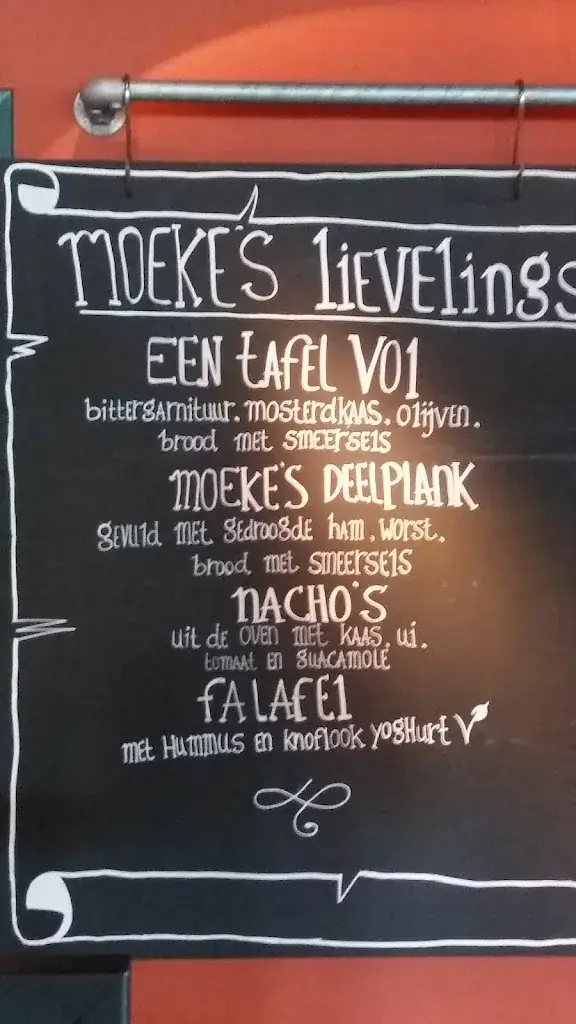 MOEKE'S lievelings
EEN tAfEl VOl
bittergarnituur. mosterdkaas. olijven.
brood met smeersels
MOEKE'S DEELPLANK
gevuld met gedroogde ham. worst.
brood met smeersels
NACHO'S
uit de oven met kaas, ui.
tomaat en guacamole
fALAfEl
met Hummus en knoflook yoghurt V